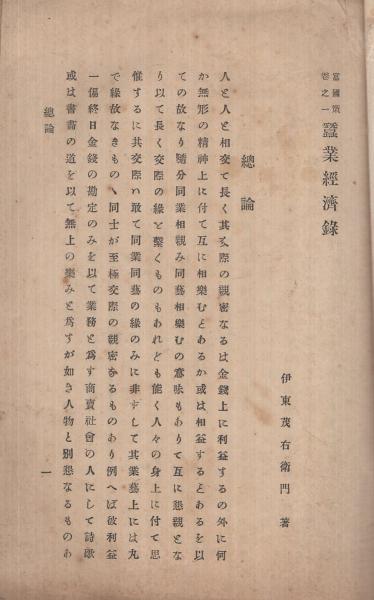 富國策
卷之一
蠶業經濟錄
伊東茂右衛門 著
總論
人と人と相交て長く其交際の親密なるは金錢上に利益するの外に何
か無形の精神上に付て互に相樂むとあるか或は相益するとあるを以
ての故なり隨分同業相親み同藝相樂むの意味もありて互に懇親とな
り以て長く交際の緣と繫くものもあれども能く人々の身上に付て思
催するに其交際は敢て同業同藝の緣のみに非ずして其業藝上には丸
で緣故なきものゝ同士が至極交際の親密なるものあり例へば故利益
一偏終日金錢の勘定のみを以て業務と爲す商賣社會の人にして詩歌
或は書畵の道を以て無上の樂みと爲すが如き人物と別懇なるものあ
總論
一